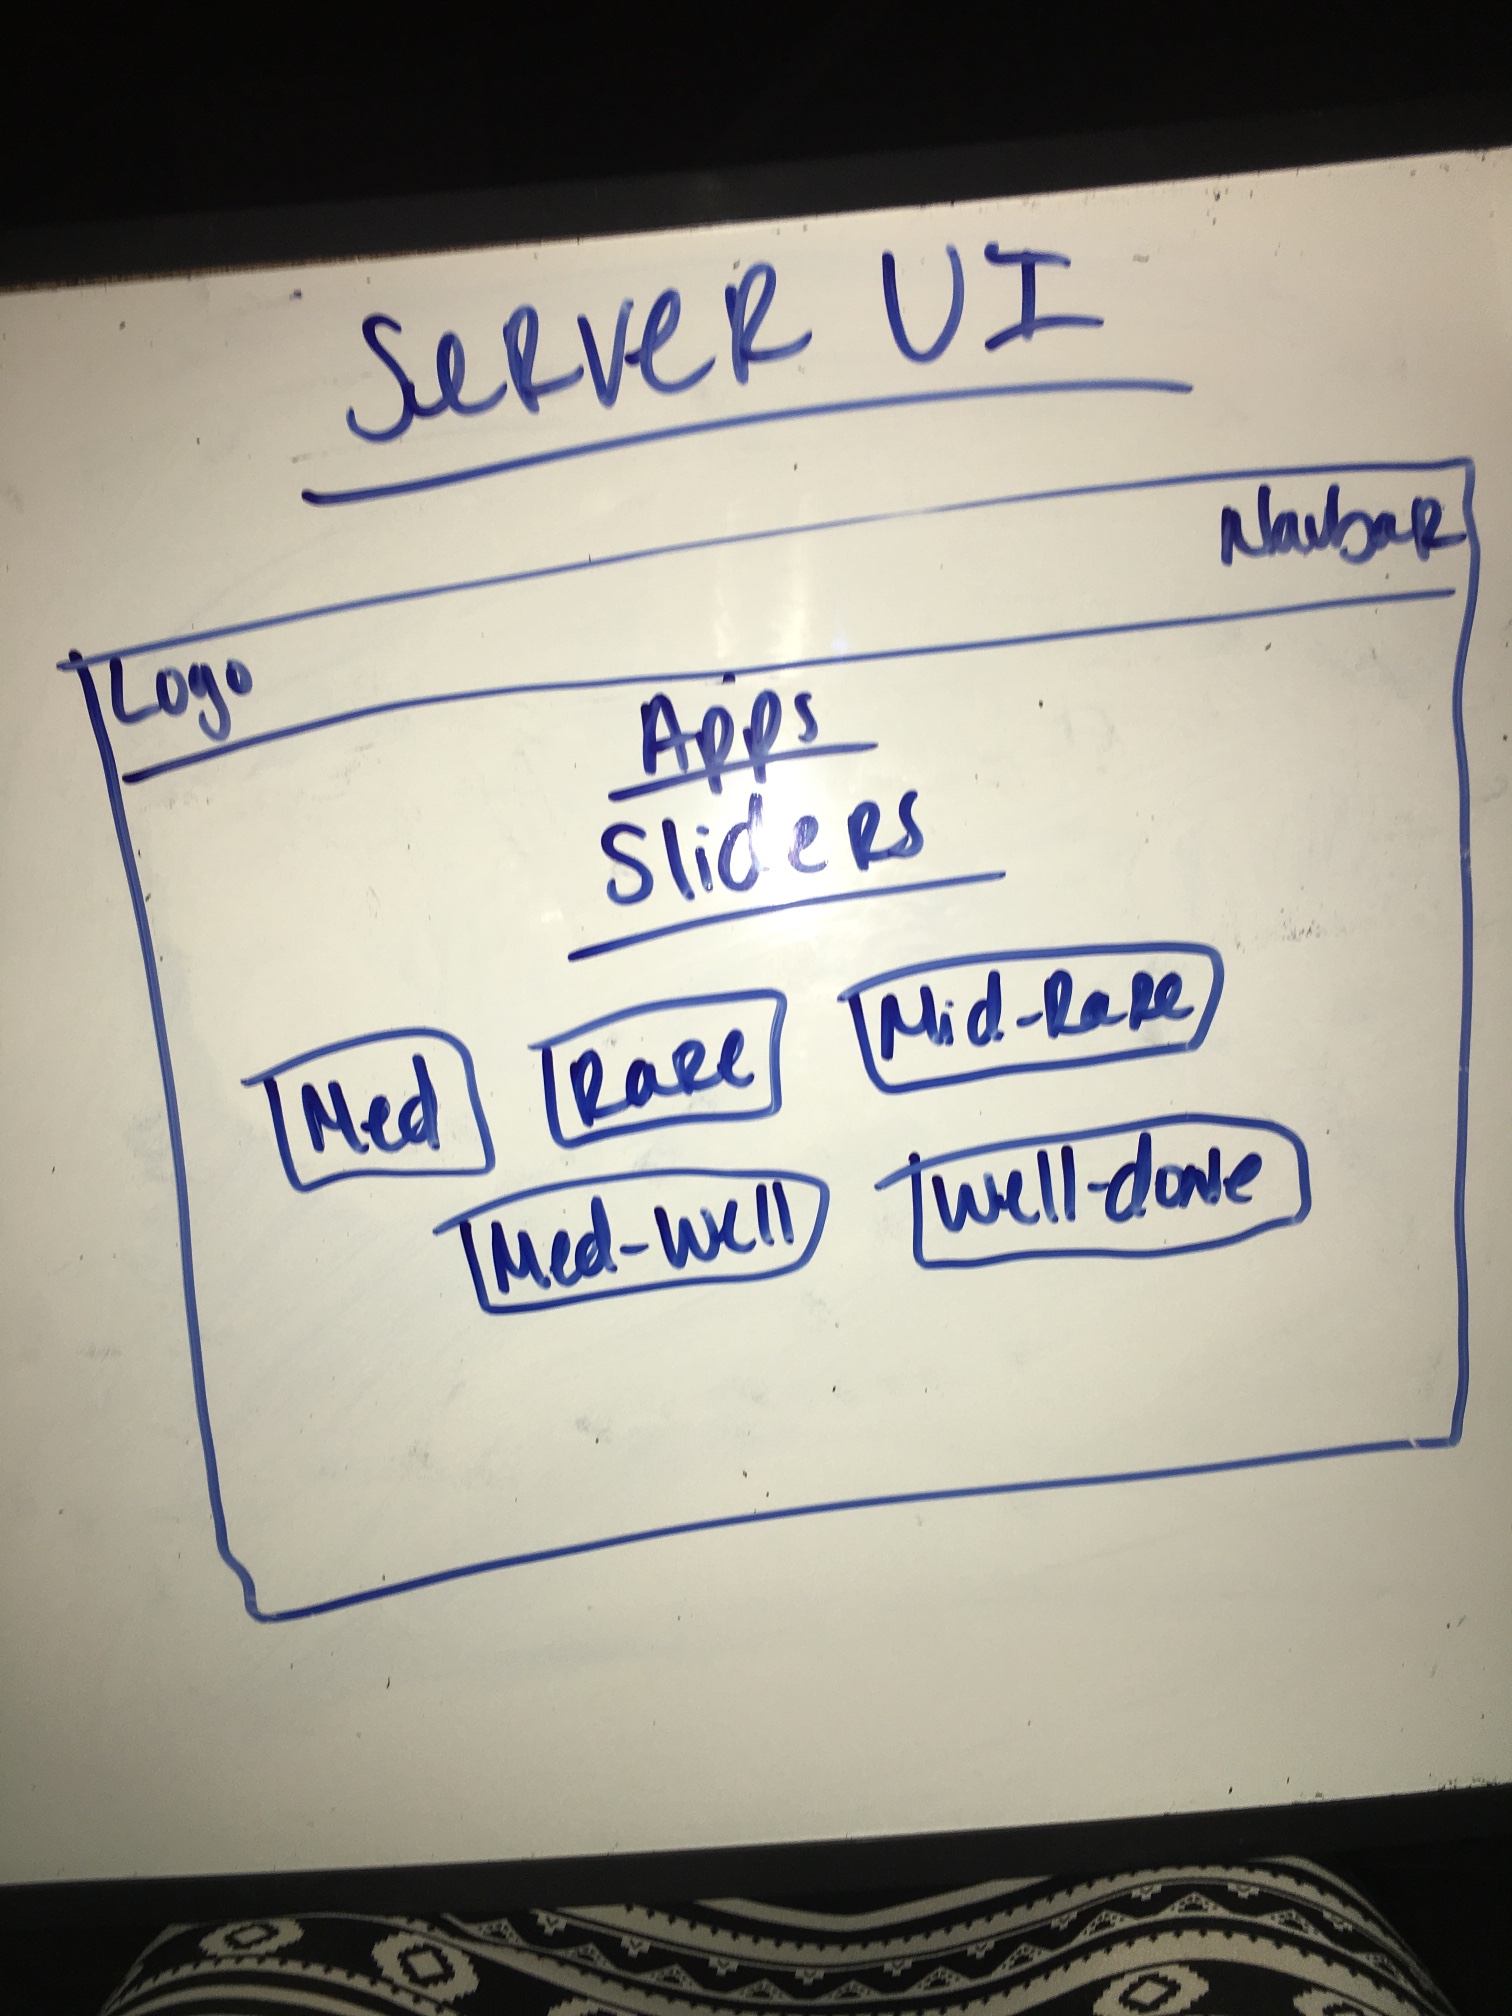 Server UI
Navbar
Logo
Apps
Sliders
Med Rare Mid-Rare
Med-Well Well-done